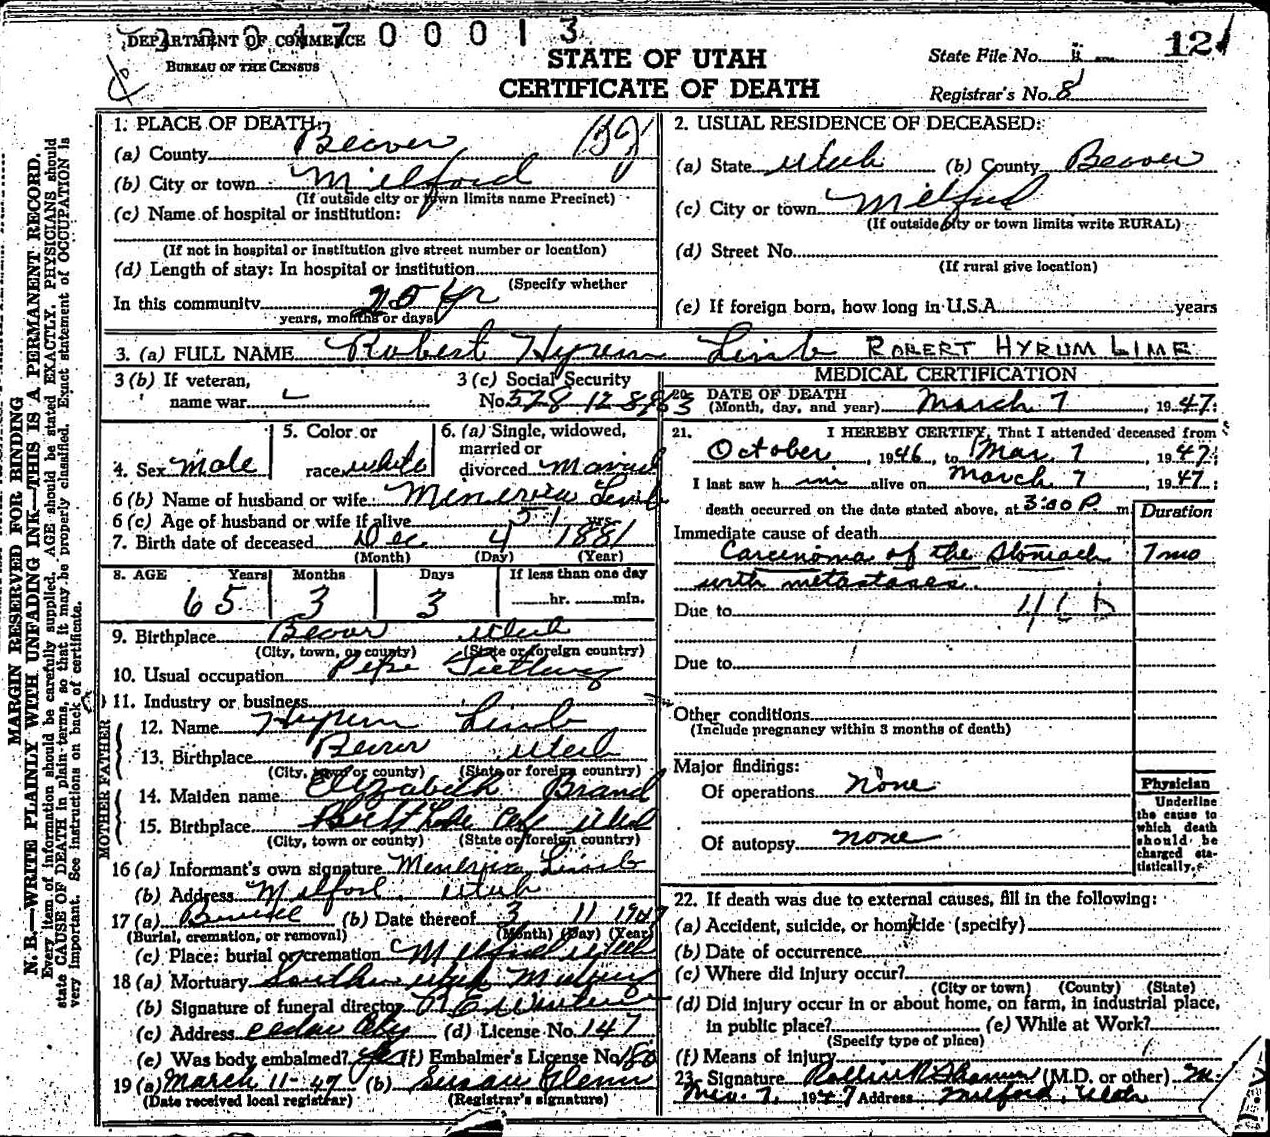 DEPARTMENT OF COMMERCE
BUREAU OF THE CENSUS
0 0 0 1 3
STATE OF UTAH
CERTIFICATE OF DEATH
State File No.
12
Registrar's No. 8
MARGIN RESERVED FOR BINDING
N. B.—WRITE PLAINLY WITH UNFADING INK—THIS IS A PERMANENT RECORD.
Every item of information should be carefully supplied. AGE should be stated EXACTLY. PHYSICIANS should
state CAUSE OF DEATH in plain terms, so that it may be properly classified. Exact statement of OCCUPATION is
very important. See instructions on back of certificate.
1. PLACE OF DEATH:
(a) County Beaver
(b) City or town Milford
(If outside city or town limits name Precinct)
(c) Name of hospital or institution:
(If not in hospital or institution give street number or location)
(d) Length of stay: In hospital or institution
(Specify whether
In this community 25 yr
years, months or days)
2. USUAL RESIDENCE OF DECEASED:
(a) State Utah (b) County Beaver
(c) City or town Milford
(If outside city or town limits write RURAL)
(d) Street No.
(If rural give location)
(e) If foreign born, how long in U.S.A. years
3. (a) FULL NAME Robert Hyrum Limb ROBERT HYRUM LIME
3 (b) If veteran,
name war
3 (c) Social Security
No.
4. Sex male
5. Color or
race white
6. (a) Single, widowed,
married or
divorced Married
6 (b) Name of husband or wife Minerva Limb
6 (c) Age of husband or wife if alive 51 yrs.
7. Birth date of deceased Dec 4 1881
(Month) (Day) (Year)
8. AGE Years Months Days If less than one day
65 3 3 hr. min.
9. Birthplace Beaver Utah
(City, town, or county) (State or foreign country)
10. Usual occupation Pipe
11. Industry or business
FATHER
12. Name Hyrum Limb
13. Birthplace Beaver Utah
(City, town or county) (State or foreign country)
MOTHER
14. Maiden name Elizabeth Brand
15. Birthplace Salt Lake City Utah
(City, town or county) (State or foreign country)
16 (a) Informant's own signature Minerva Limb
(b) Address Milford Utah
17 (a) Burial (b) Date thereof 3 11 1947
(Burial, cremation, or removal) (Month) (Day) (Year)
(c) Place: burial or cremation Milford Utah
18 (a) Mortuary Southern Utah Mortuary
(b) Signature of funeral director
(c) Address Cedar City (d) License No. 147
(e) Was body embalmed? yes (f) Embalmer's License No. 180
19 (a) March 11-47 (b) Susan Glenn
(Date received local registrar) (Registrar's signature)
MEDICAL CERTIFICATION
20. DATE OF DEATH
(Month, day, and year) March 7, 1947.
21. I HEREBY CERTIFY, That I attended deceased from
October, 1946, to Mar. 7, 1947;
I last saw him alive on March 7, 1947.
death occurred on the date stated above, at 3:00 P. m
Duration
Immediate cause of death
Carcinoma of the Stomach 7 mo
with metastases.
Due to 46 b
Due to
Other conditions
(Include pregnancy within 3 months of death)
Major findings:
Of operations none
Of autopsy none
Physician
Underline
the cause to
which death
should be
charged sta-
tistically.
22. If death was due to external causes, fill in the following:
(a) Accident, suicide, or homicide (specify)
(b) Date of occurrence
(c) Where did injury occur?
(City or town) (County) (State)
(d) Did injury occur in or about home, on farm, in industrial place,
in public place? (e) While at Work?
(Specify type of place)
(f) Means of injury
23. Signature (M.D. or other)
Mar. 7, 1947 Address Milford, Utah